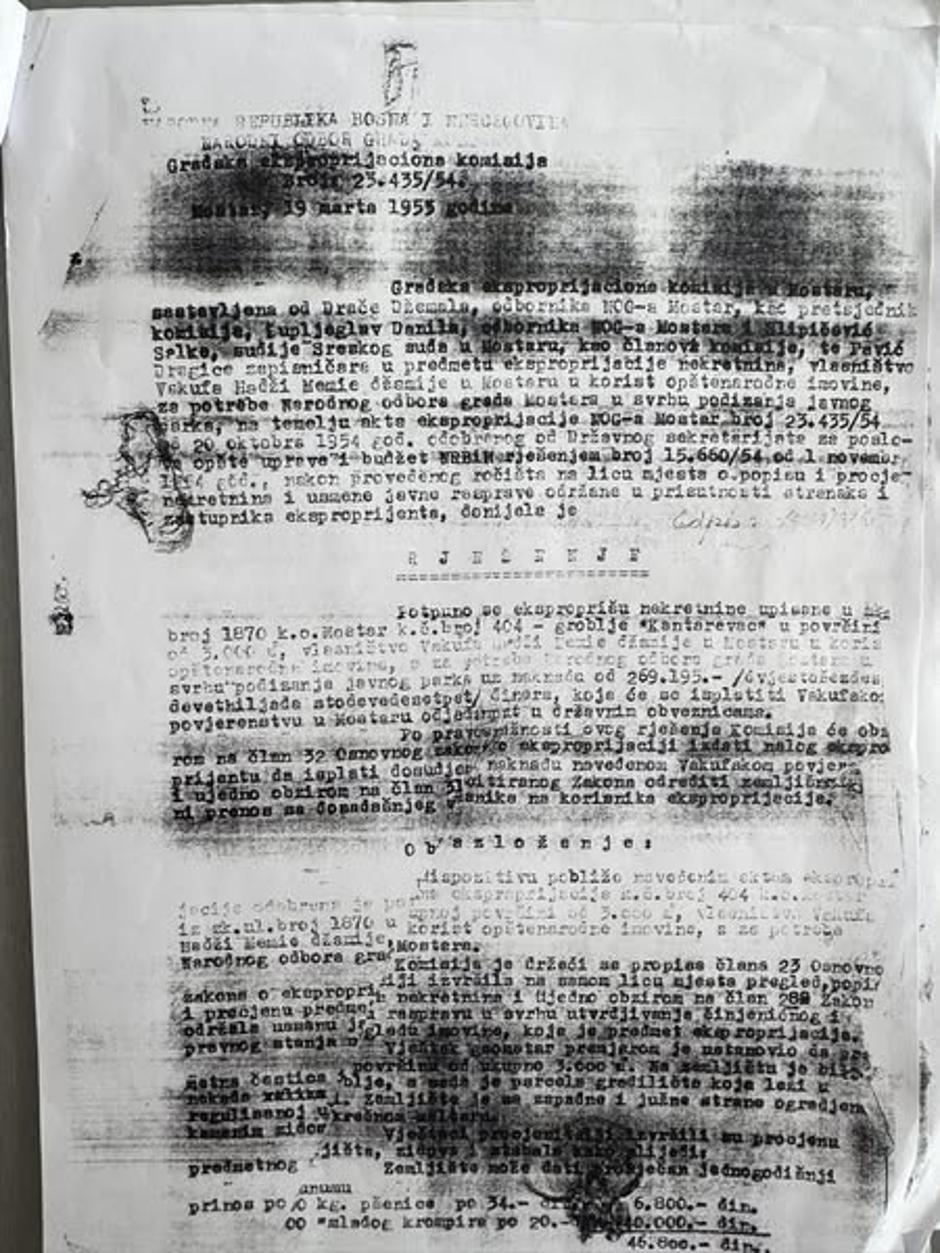 NARODNA REPUBLIKA BOSNA I HERCEGOVINA
NARODNI ODBOR GRADA
Gradska eksproprijaciona komisija
Broj: 23.435/54.
Mostar, 19 marta 1955 godine
Gradska eksproprijaciona komisija u Mostaru,
sastavljena od Drače Džemala, odbornika NOG-a Mostar, kao pretsjednik
komisije, Kupljeglav Danila, odbornika NOG-a Mostara i Klipičević
Salke, sudije Sreskog suda u Mostaru, kao članova komisije, te Pavić
Dragice zapisničara u predmetu eksproprijacije nekretnina, vlasništvo
Vakufa Hadži Memie džamije u Mostaru u korist opštenarodne imovine,
za potrebe Narodnog odbora grada Mostara u svrhu podizanja javnog
parka, na temelju akta eksproprijacije NOG-a Mostar broj 23.435/54
od 20 oktobra 1954 god. odobrenog od Državnog sekretarijata za poslo-
ve opšte uprave i budžet NRBiH rješenjem broj 15.660/54 od 1 novembr
1954 god., nakon provedenog ročišta na licu mjesta o popisu i procje-
nekretnina i usmene javne rasprave održane u prisutnosti stranaka i
zastupnika eksproprijenta, donijela je
R J E Š E N J E
Potpuno se eksproprišu nekretnine upisane u
broj 1870 k.o.Mostar k.č.broj 404 - groblje "Kantarevac" u površini
od 3.000 m, vlasništvo Vakufa Hadži Memie džamije u Mostaru u koris
opštenarodne imovine, a za potrebe Narodnog odbora grada Mostara u
svrhu podizanja javnog parka uz naknadu od 269.195.- /dvjestošezdes
devethiljada stodevedesetpet/ dinara, koja će se isplatiti Vakufsko
povjerenstvu u Mostaru odjedanput u državnim obveznicama.
Po pravosnažnosti ovog rješenja Komisija će obz
rom na član 32 Osnovnog zakona o eksproprijaciji izdati nalog ekspro
prijentu da isplati dosudjenu naknadu navedenom Vakufskom povjer
i ujedno obzirom na član citiranog Zakona odrediti zemljišnoknj
ni prenos sa dosadašnjeg vlasnika na korisnika eksproprijacije.
O b r a z l o ž e n j e :
dispozitivu pobliže navedenim aktom ekspropri
jacije odobrena je pot na eksproprijacija k.č.broj 404 k.o.Mostar
iz zk.ul.broj 1870 u upnoj površini od 3.000 m, vlasništvo Vakufa
Hadži Memie džamije, korist opštenarodne imovine, a za potrebe
Narodnog odbora gra Mostara.
Komisija je držeći se propisa člana 23 Osnovno
zakona o eksproprijaciji izvršila na samom licu mjesta pregled, popis
i procjenu predme nekretnina i ujedno obzirom na član 28 Zakon
održala usmenu j raspravu u svrhu utvrdjivanja činjeničnog i
pravnog stanja pogledu imovine, koja je predmet eksproprijacije.
Vještak geometar premjerom je ustanovio da
metna čestica površinu od ukupno 3.000 m. Na zemljištu je bilo
nekada groblje, a sada je parcela gradilište koja leži u
regulisanoj Zemljište je sa zapadne i južne strane ogradjeno
kamenim zidom krečnom malteru.
Vještaci procjenitelji izvršili su procjenu
predmetnog jišta, zidova i stabala kako slijedi:
Zemljište može dati prosječan jednogodišnji
prinos po dunumu
kg. pšenice po 34.- din. 6.800.- din.
00 "mladog krompira po 20.- 40.000.- din.
46.800.- din.